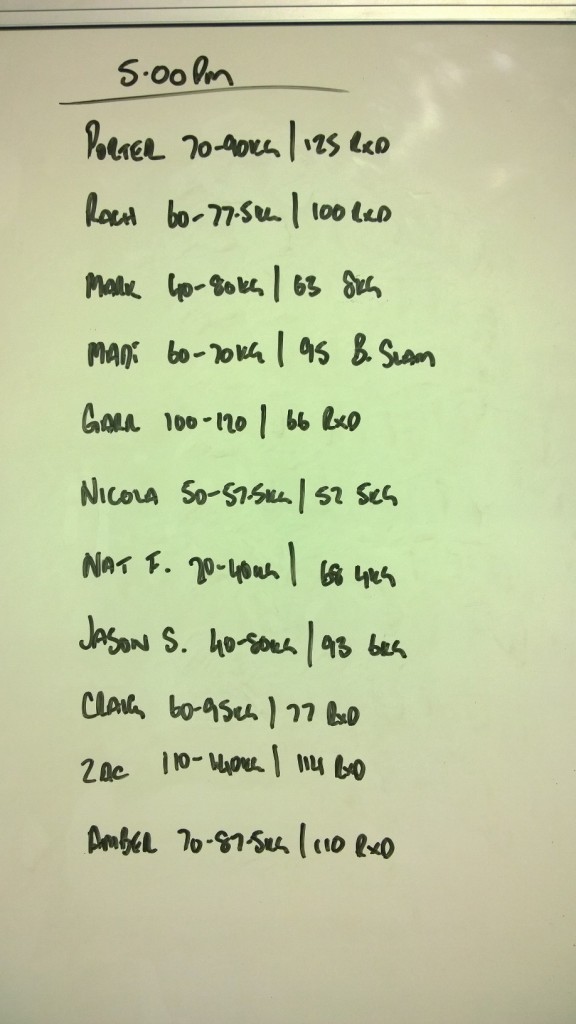 5.00Pm
PORTER 70-90KG | 125 RxD
RACH 60-77.5KG | 100 RxD
MARK 40-80KG | 63 8KG
MADi 60-70KG | 95 B. SLAM
GARR 100-120 | 66 RxD
NICOLA 50-57.5KG | 52 5KG
NAT F. 20-40KG | 68 4KG
JASON S. 40-80KG | 93 6KG
CRAIG 60-95KG | 77 RxD
ZAC 110-140KG | 114 RxD
AMBER 70-87.5KG | 110 RxD